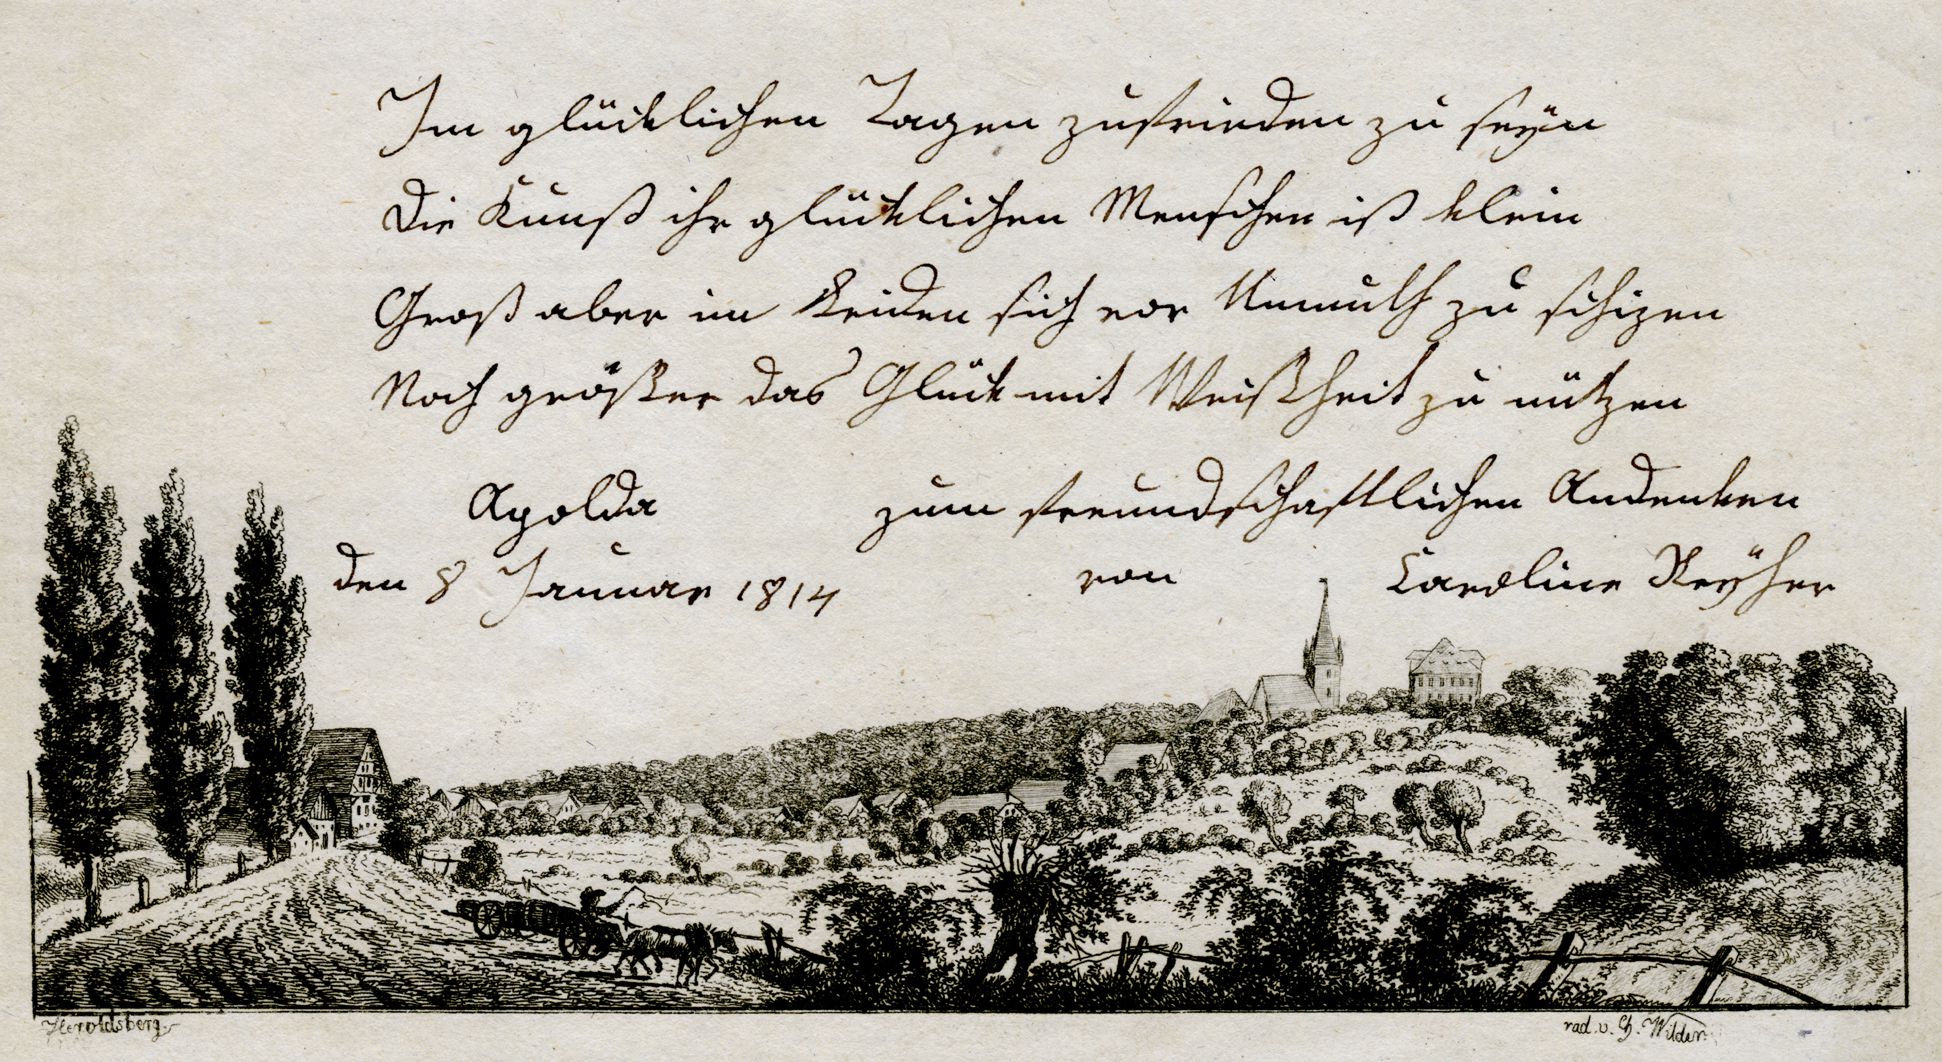 Im glücklichen Tagen zufrieden zu seÿn
Die Kunst ihr glücklichen Menschen ist klein
Groß aber im Leiden sich vor Unmuth zu schizen
Noch größer das Glück mit Weißheit zu nützen
Apolda zum freundschaftlichen Andenken
den 8 Januar 1814 von Caroline Reÿher
Heroldsberg
rad. v. Ch. Wilder